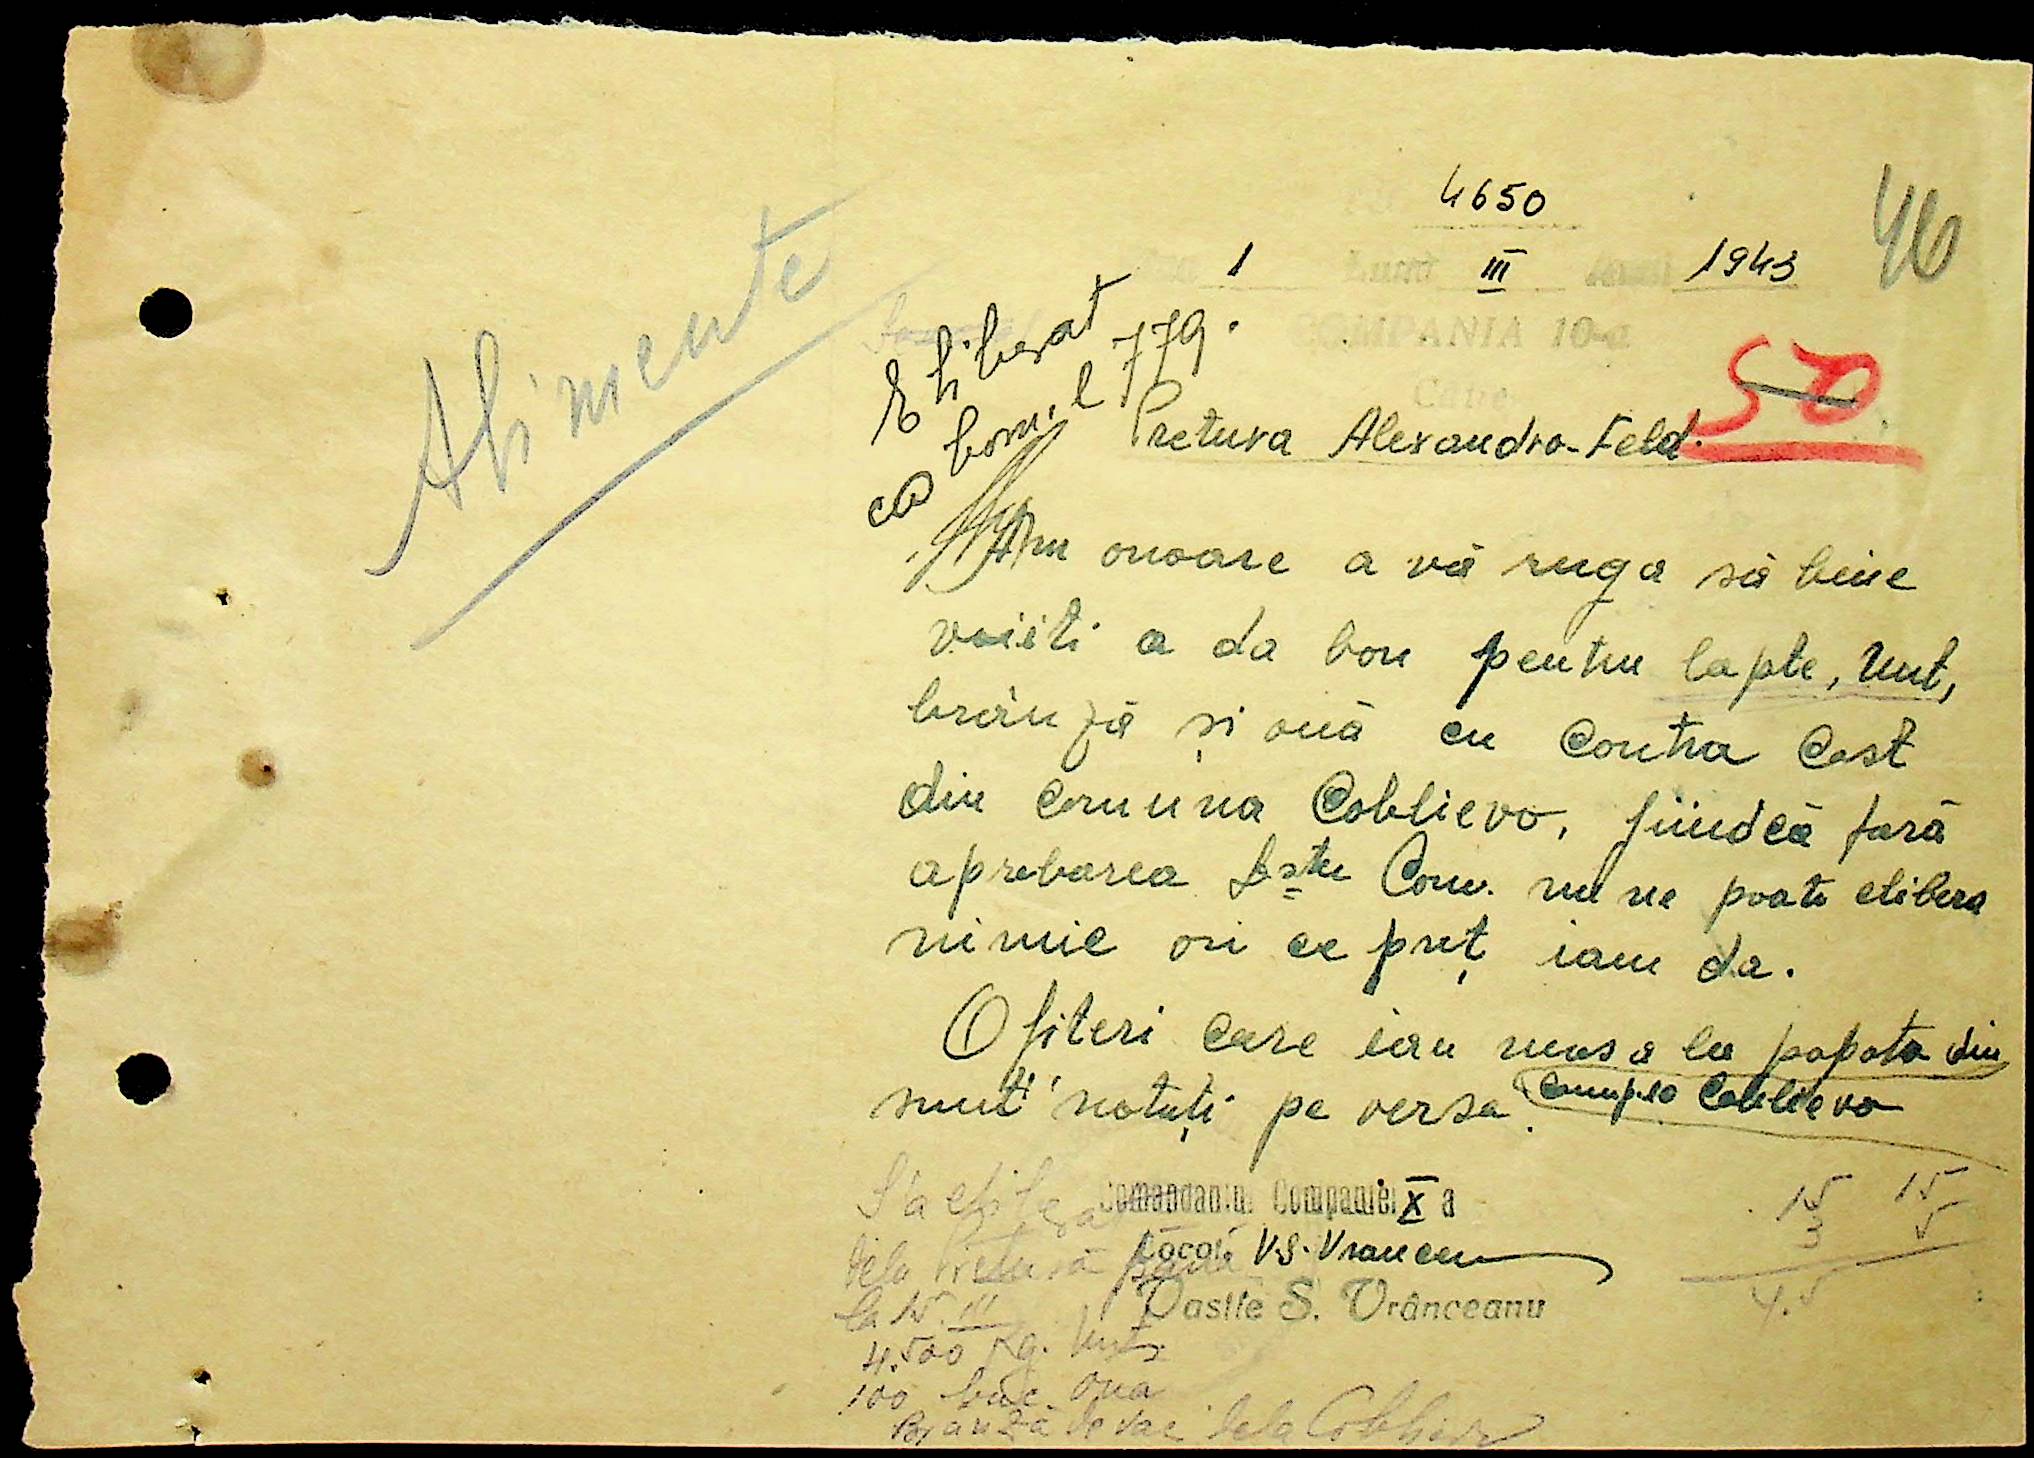 4650
46
1 Luna III Anul 1943
COMPANIA 10-a
Către
50
Alimente
Eliberat
cu bonul 779.
Pretura Alexandro-Feld.
Am onoare a vă ruga să bine
voiiti a da bon pentru lapte, Unt,
brânză și ouă cu contra cost
din comuna Coblievo, fiindcă fară
aprobarea Dstre Com. nu ne poate elibera
nimic ori ce preț iam da.
Ofiteri care iau masa la popota din
Comp. 10 Coblievo
sunt notați pe verso.
Comandantul Companiei X a
Locot V.S. Vranceanu
Vasile S. Vrânceanu
S'a eliberat
dela Pretură până
la 15. III
4.500 Kg. Unt
100 buc. oua
Branză de vaci dela Coblievo
15 15
3 5
4.5